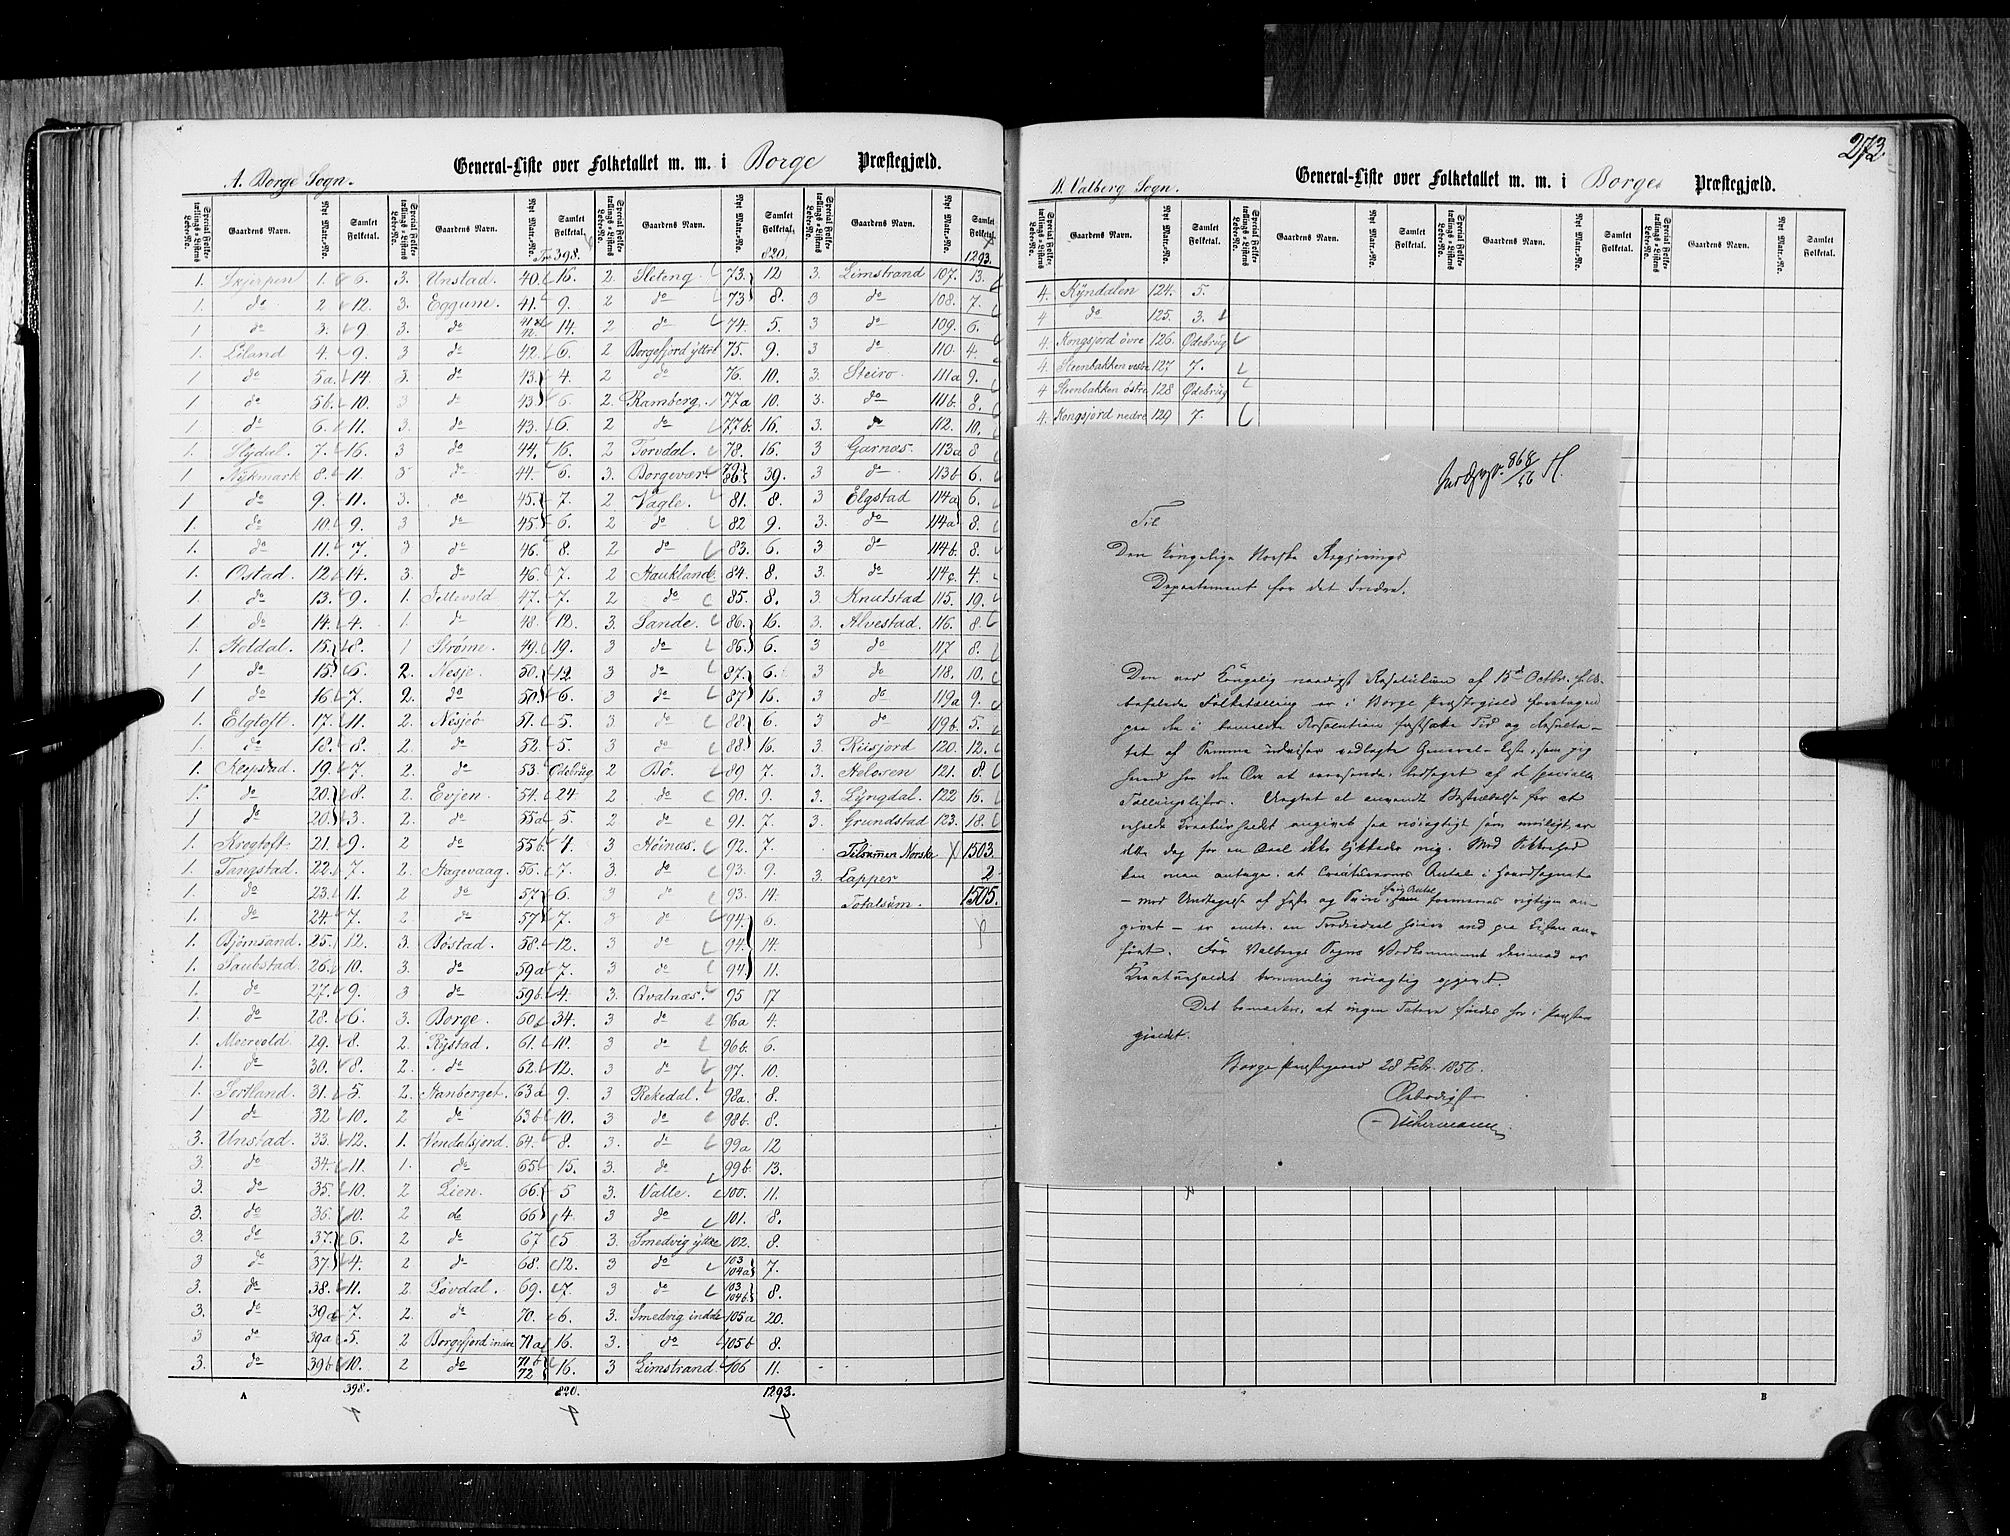 General-Liste over Folketallet m. m. i Borge Præstegjæld.
A. Borge Sogn.
Special Folketællings-Listens Løbe-No. Gaardens Navn. Nyt Matr.-No. Samlet Folketal.
Special Folketællings-Listens Løbe-No. Gaardens Navn. Nyt Matr.-No. Samlet Folketal.
Special Folketællings-Listens Løbe-No. Gaardens Navn. Nyt Matr.-No. Samlet Folketal.
Special Folketællings-Listens Løbe-No. Gaardens Navn. Nyt Matr.-No. Samlet Folketal.
398. 820. 1293.
1. Skjerpen 1. 6. 3. Unstad. 40. 16. 2. Sleteng 73. 12 3. Limstrand 107. 13.
1. do 2 12. 3. Eggum. 41. 9. 2 do 73 8. 3 do 108. 7.
1 do 3. 9 3. do 41 42. 14. 2 do 74. 5. 3 do 109. 6.
1. Liland 4. 9. 3 do 42. 6. 2 Borgefjord yttre 75. 9. 3 do 110. 4.
1 do 5a. 14. 3. do 43. 4. 2 do 76. 10. 3. Steiro. 111a 9.
1. do 5b. 10. 3 do 43 6. 2. Ramberg. 77a 10. 3. do 111b. 8.
1. do 6. 11. 3. do 43. 6. 2 do 77b. 16. 3. do 112. 10.
1. Slydal. 7. 16. 3. do 44. 16. 2 Torvdal. 78. 16. 3 Garnæs. 113a 8
1. Nykmark 8. 11 3 do 44. 6. 3. Borgevær 79 86. 39. 3 do 113b 6.
1 do 9. 11. 3. do 45. 7. 2 Vågle. 81. 8. 3 Elgstad 114a 6.
1. do 10. 9. 3 do 45. 6. 2 do 82 9. 3. do 114a 8.
1. do 11. 7. 3 do 46. 8. 2 do 83. 6. 3 do 114b. 8.
1. Ostad. 12. 14. 3. do 46. 7. 2 Haukland 84. 8. 3. do 114c. 4.
1. do 13. 9. 1. Tellevold 47. 7. 2 do 85. 8. 3. Knutstad 115. 19.
1. do 14. 4. 1. do 48. 12. 3. Sande. 86. 16. 3. Alvestad. 116. 8
1. Heldal. 15. 8. 1 Strøme. 49. 19. 3 do 86. 6. 3 do 117 8.
1 do 15. 6. 2. Nesje. 50. 12. 3 do 87. 6. 3 do 118. 10.
1 do 16. 7. 2. do 50. 6. 3 do 87 16. 3 do 119a 9.
1. Elgtoft. 17. 11. 2. Nesjeö 51. 5. 3 do 88 6. 3 do 119b. 5.
1. do 18. 8. 2. do 52. 5. 3 do 88. 16. 3. Riisjord 120. 12.
1. Repstad. 19. 7. 2. do 53. Ødebrug 2 Bö. 89 7. 3. Helosen 121. 8.
1. do 20. 8. 2. Evjen. 54. 24. 2 do 90. 9. 3. Lyngdal. 122 16.
1 do 20. 3. 2. do 55a 5. 2 do 91. 7. 3. Grundstad 123. 18.
1. Krogtoft. 21. 9. 2 do 55b. 4. 3 Höinæs. 92. 7. Tilsamen Norske 1503.
1. Tangstad. 22. 7. 2. Hagevaag. 56. 7. 3. do 93. 9. 3. Lapper 2
1. do 23. 11. 2 do 57 6. 3 do 93. 14. Totalsum. 1505.
1. do 24. 7. 2 do 57 7. 3 do 94. 6.
1. Bjørnsand. 25. 12. 3. Böstad. 58. 12. 3 do 94. 14.
1. Saubstad. 26. 10. 3. do 59a 7. 3 do 94. 11.
1. do 27. 9. 3 do 59b. 4. 3. Qvalnæs. 95 17
1. do 28. 6. 3. Borge. 60 34. 3 do 96a 4.
1. Meervold 29. 8. 2. Rystad. 61. 10. 3 do 96b. 6.
1. do 30. 8. 2. do 62. 12. 3 do 97. 10.
1. Sortland. 31. 5. 2. Hanberget. 63a 9. 3 Rekedal. 98a. 8.
1 do 32 10. 2 do 63b 10. 3 do 98b. 8.
3. Unstad. 33. 12. 1. Vendalsjord. 64. 8. 3. do 99a 12
3. do 34. 11. 1. do 65 15. 3. do 99b. 13.
3. do 35. 10. 2 Lien. 66. 5 3. Valle. 100. 11.
3. do 36. 10. 2 do 66 4. 3 do 101. 8.
3 do 37. 6. 2 do 67 5 3. Smedvig yttre 102. 8.
3 do 37. 4. 2 do 68. 12. 3 do 103 104a 7.
3. do 38. 11. 2. Lövdal. 69. 7. 3 do 103 104b. 8.
3. do 39a 7. 2. do 70. 6. 3. Smedvig inddre 105a 20.
3 do 39a 5. 2 Borgefjord indre 71a 16. 3. do 105b 8.
3. do 39b 10. 2 do 71b 72 16. 3 Limstrand. 106 11.
A 398. 820. 1293.
273.
General-Liste over Folketallet m. m. i Borge Præstegjæld.
B. Valberg Sogn.
Special Folketællings-Listens Løbe-No. Gaardens Navn. Nyt Matr.-No. Samlet Folketal.
Special Folketællings-Listens Løbe-No. Gaardens Navn. Nyt Matr.-No. Samlet Folketal.
Special Folketællings-Listens Løbe-No. Gaardens Navn. Nyt Matr.-No. Samlet Folketal.
Special Folketællings-Listens Løbe-No. Gaardens Navn. Nyt Matr.-No. Samlet Folketal.
4. Kyndalen 124. 5.
4 do 125. 3.
4. Kongsjord övre 126. Ødebrug
4. Steenbakken vestre 127 7.
4 Steenbakken östre 128 Ødebrug
4. Kongsjord nedre 129 7.
868/56
Til
Den Kongelige Norske Regjerings
Departement for det Indre.
Den ved Kongelig naadigst Resolution af 15d Octbr.
befalede Folketælling er i Borge Præstegjeld foretagen
paa den i bemeldte Resolution fastsatte Tid og Resulta-
tet af Samme udviser vedlagte General-Liste, som jeg
herved har den Ære at oversende, ledsaget af de specielle
Tællingslister. Uagtet al anvendt Bestræbelse for at
erholde Kreaturholdet angivet saa nöiagtigt som muligt, er
dette dog for en Deel ikke lykkedes mig. Med Sikkerhed
kan man antage, at Creaturernes Antal i Hovedsognet
- med Undtagelse af Heste og Sviin, hvis Antal
givet - er omtr. en Trediedeel höiere end paa Listen an-
fört. For Valbergs Sogns Vedkommende derimod er
Kreaturholdet temmelig nöiagtig opgivet.
Det bemærkes, at ingen Tatere findes her i Præste
gjeldet.
Borge Præstegaard 28 Febr. 1856.
Ærbødigst
B